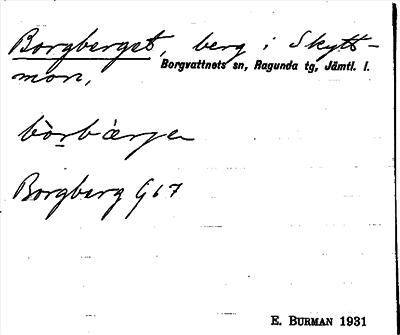 Borgberget, berg i Skytt-
mon,
Borgvattnets sn, Ragunda tg, Jämtl. l.
bòrbàrjen
Borgberg G67
E. BURMAN 1931